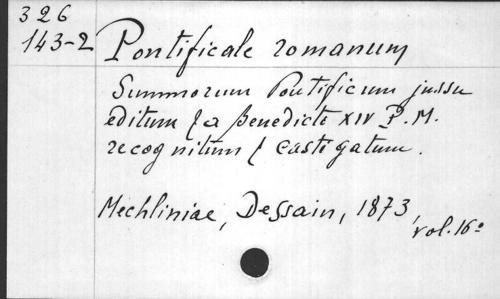 326
143-2
Pontificale romanum
Summorum Pontificum jussu
editum / a Benedicto XIV P. M.
recognitum / castigatum.
Mechliniae, Dessain, 1873,
vol. 16°